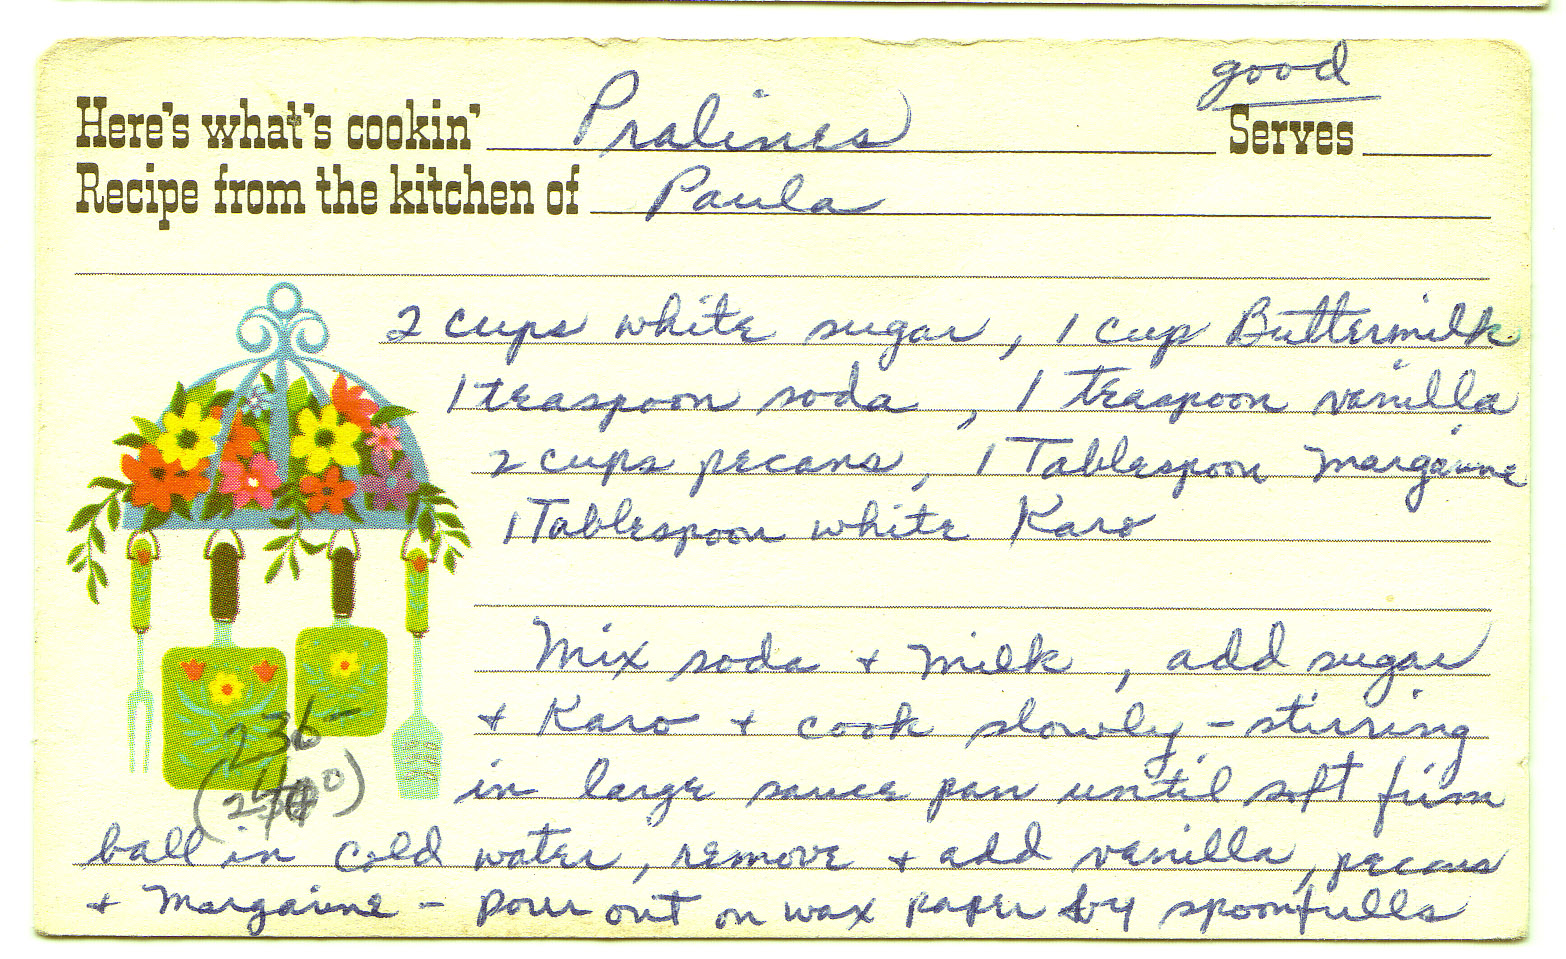 good
Here's what's cookin' Pralines Serves
Recipe from the kitchen of Paula
2 cups white sugar, 1 cup Buttermilk
1 teaspoon soda, 1 teaspoon vanilla
2 cups pecans, 1 Tablespoon margarine
1 Tablespoon white Karo
Mix soda + milk, add sugar
+ Karo + cook slowly - stirring
in large sauce pan until soft firm
236-
(240°)
ball in cold water, remove + add vanilla, pecans
+ Margarine - pour out on wax paper by spoonfulls